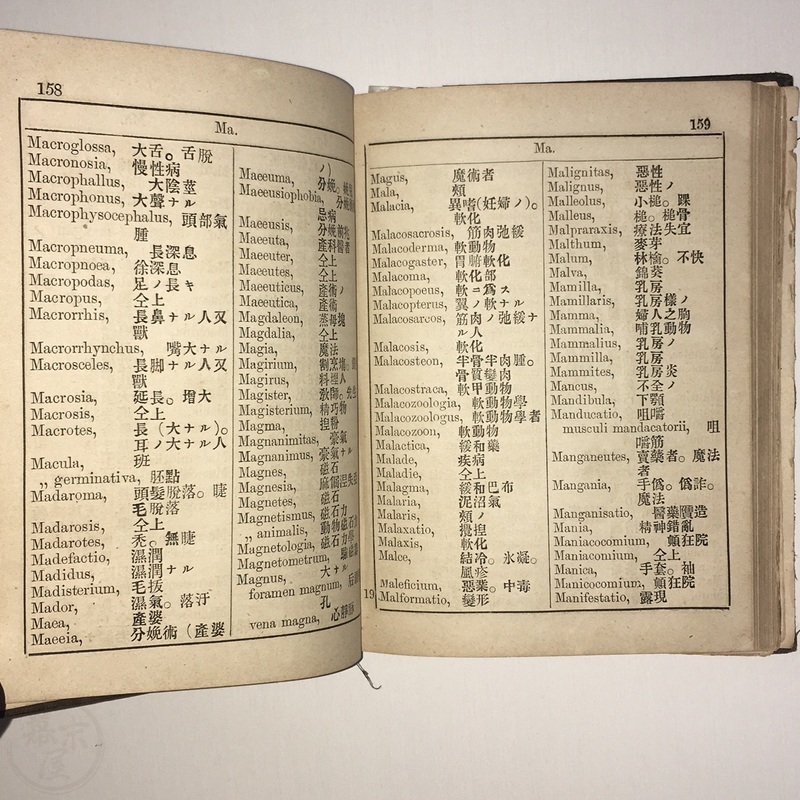 158
Ma.
Macroglossa, 大舌。舌脫
Macronosia, 慢性病
Macrophallus, 大陰莖
Macrophonus, 大聲ナル
Macrophysocephalus, 頭部氣
腫
Macropneuma, 長深息
Macropnoea, 徐深息
Macropodas, 足ノ長キ
Macropus, 仝上
Macrorrhis, 長鼻ナル人又
獸
Macrorrhynchus, 嘴大ナル
Macrosceles, 長脚ナル人又
獸
Macrosia, 延長。增大
Macrosis, 仝上
Macrotes, 長(大ナル)。
耳ノ大ナル人
Macula, 班
„ germinativa, 胚點
Madaroma, 頭髮脫落。睫
毛脫落
Madarosis, 仝上
Madarotes, 禿。無睫
Madefactio, 濕潤
Madidus, 濕潤ナル
Madisterium, 毛拔
Mador, 濕氣。落汗
Maea, 產婆
Maeeia, 分娩術(產婆
ノ)
Maeeuma, 分娩。
Maeeusiophobia,
忌病
Maeeusis, 分娩
Maeeuta, 產科醫者
Maeeuter, 仝上
Maeeutes, 仝上
Maeeuticus, 產術ノ
Maeeutica, 產術
Magdaleon, 蒸母塊
Magdalia, 仝上
Magia, 魔法
Magirium, 割烹
Magirus, 料理人
Magister, 敎師。
Magisterium, 精巧物
Magma, 捏粉
Magnanimitas, 豪氣
Magnanimus, 豪氣ナル
Magnes, 磁石
Magnesia, 麻倔涅失亞
Magnetes, 磁石
Magnetismus, 磁石力
„ animalis, 動物磁石力
Magnetologia, 磁石力學
Magnetometrum,
Magnus, 大ナル
foramen magnum,
孔
vena magna,
159
Ma.
Magus, 魔術者
Mala, 頰
Malacia, 異嗜(妊婦ノ)。
軟化
Malacosacrosis, 筋肉弛緩
Malacoderma, 軟動物
Malacogaster, 胃腑軟化
Malacoma, 軟化部
Malacopoeus, 軟ニ爲ス
Malacopterus, 翼ノ軟ナル
Malacosarcos, 筋肉ノ弛緩ナ
ル人
Malacosis, 軟化
Malacosteon, 半骨半肉腫。
骨質變肉
Malacostraca, 軟甲動物
Malacozoologia, 軟動物學
Malacozoologus, 軟動物學者
Malacozoon, 軟動物
Malactica, 緩和藥
Malade, 疾病
Maladie, 仝上
Malagma, 緩和巴布
Malaria, 泥沼氣
Malaris, 頰ノ
Malaxatio, 攪捏
Malaxis, 軟化
Malce, 結冷。氷凝。
風疹
Maleficium, 惡業。中毒
19 Malformatio, 變形
Malignitas, 惡性
Malignus, 惡性ノ
Malleolus, 小槌。踝
Malleus, 槌。槌骨
Malpraraxis, 療法失宜
Malthum, 麥芽
Malum, 林檎。不快
Malva, 錦葵
Mamilla, 乳房
Mamillaris, 乳房樣ノ
Mamma, 婦人之胸
Mammalia, 哺乳動物
Mammalius, 乳房ノ
Mammilla, 乳房
Mammites, 乳房炎
Mancus, 不全ノ
Mandibula, 下顎
Manducatio, 咀嚼
musculi mandacatorii, 咀
嚼筋
Manganeutes, 賣藥者。魔法
者
Mangania, 手僞。僞詐。
魔法
Manganisatio, 醫藥贋造
Mania, 精神錯亂
Maniacocomium, 顚狂院
Maniaconium, 仝上
Manica, 手套。袖
Manicocomium, 顚狂院
Manifestatio, 露現